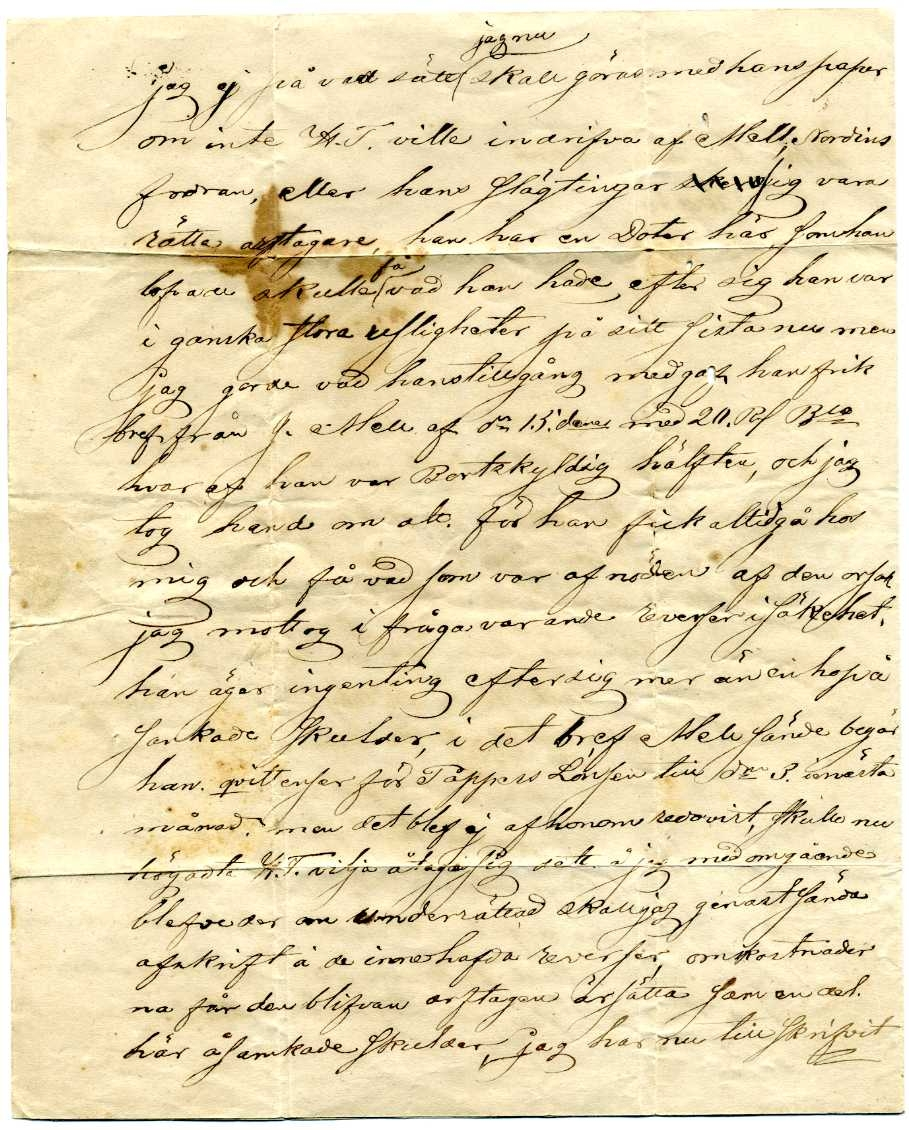 jag nu
jag ej på vad sätt skall göras med hans paper
om inte H.T. ville indrifva af Mell, Nordins
fodran, eller hans slägtingar sig vara
rätta arftagare, han har en Doter här som han
lofvade skulle få vad han hade efter sig han var
i ganska stora usligheter på sitt sista nu men
jag gorde vad hans tillgång medgaf, han fik
bref från J. Mell af dn 15 denes med 20. Rf Bco
hvar af han var Bortskyldig hälften, och jag
tog hand om alt. för han fick altid gå hos
mig och få vad som var af nöden af den orsak
jag mottog i fråga varande Reverser i säkrhet,
han äger ingenting efter sig mer än en hop å
samkade skulder, i det bref Mell sände begär
han. qvittenser för Tappers Lönsen till den 3. i nästa
månad. men det blef ej af honom redovist, skulle nu
högadta H.T. vilja åtaga sig det å jag med omgående
blefve der om underrättad skall jag genast sända
afskrift å de innehafda reverser, omkostnader
na får den blifvan arftagen ärsätta som en del.
här å samkade skulder, jag har nu till skrifvit